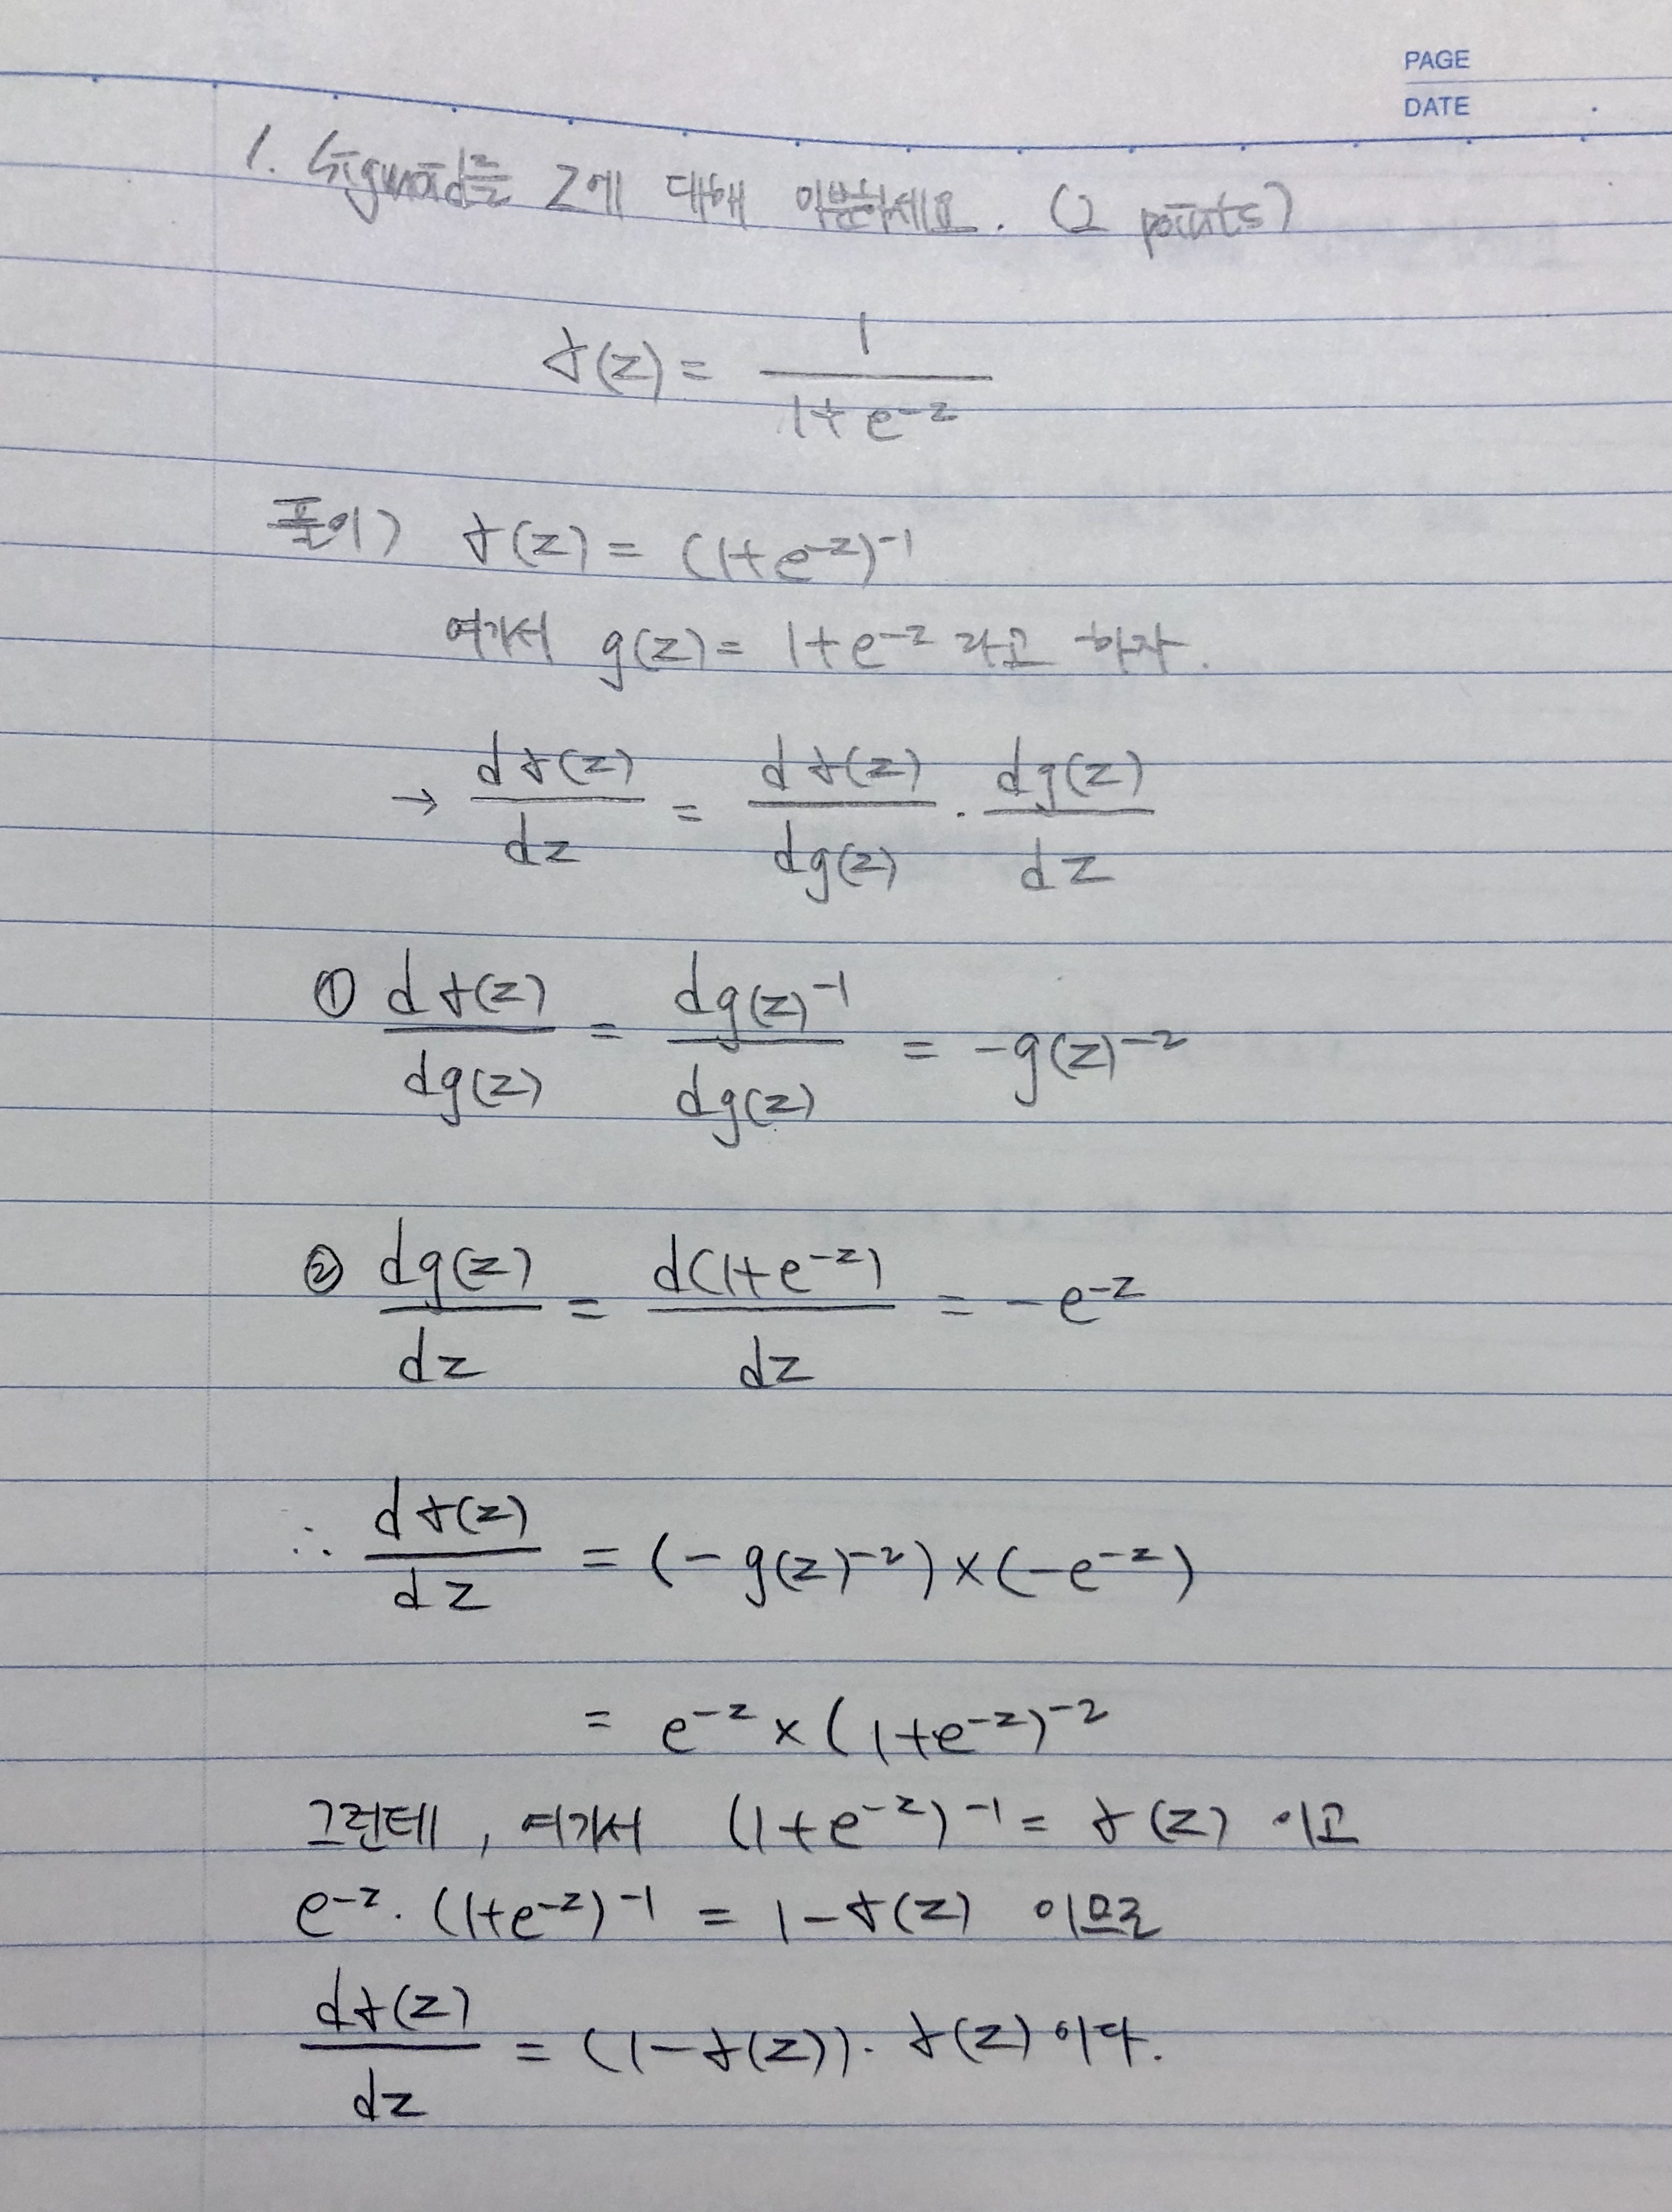 PAGE
DATE
1. Sigmoid를 z에 대해 미분하세요. (2 points)
f(z) = 1 / (1+e^-z)
풀이) f(z) = (1+e^-z)^-1
여기서 g(z) = 1+e^-z 라고 하자.
→ df(z)/dz = df(z)/dg(z) · dg(z)/dz
① df(z)/dg(z) = dg(z)^-1/dg(z) = -g(z)^-2
② dg(z)/dz = d(1+e^-z)/dz = -e^-z
∴ df(z)/dz = (-g(z)^-2)×(-e^-z)
= e^-z × (1+e^-z)^-2
그런데, 여기서 (1+e^-z)^-1 = f(z) 이고
e^-z · (1+e^-z)^-1 = 1-f(z) 이므로
df(z)/dz = (1-f(z)) · f(z) 이다.